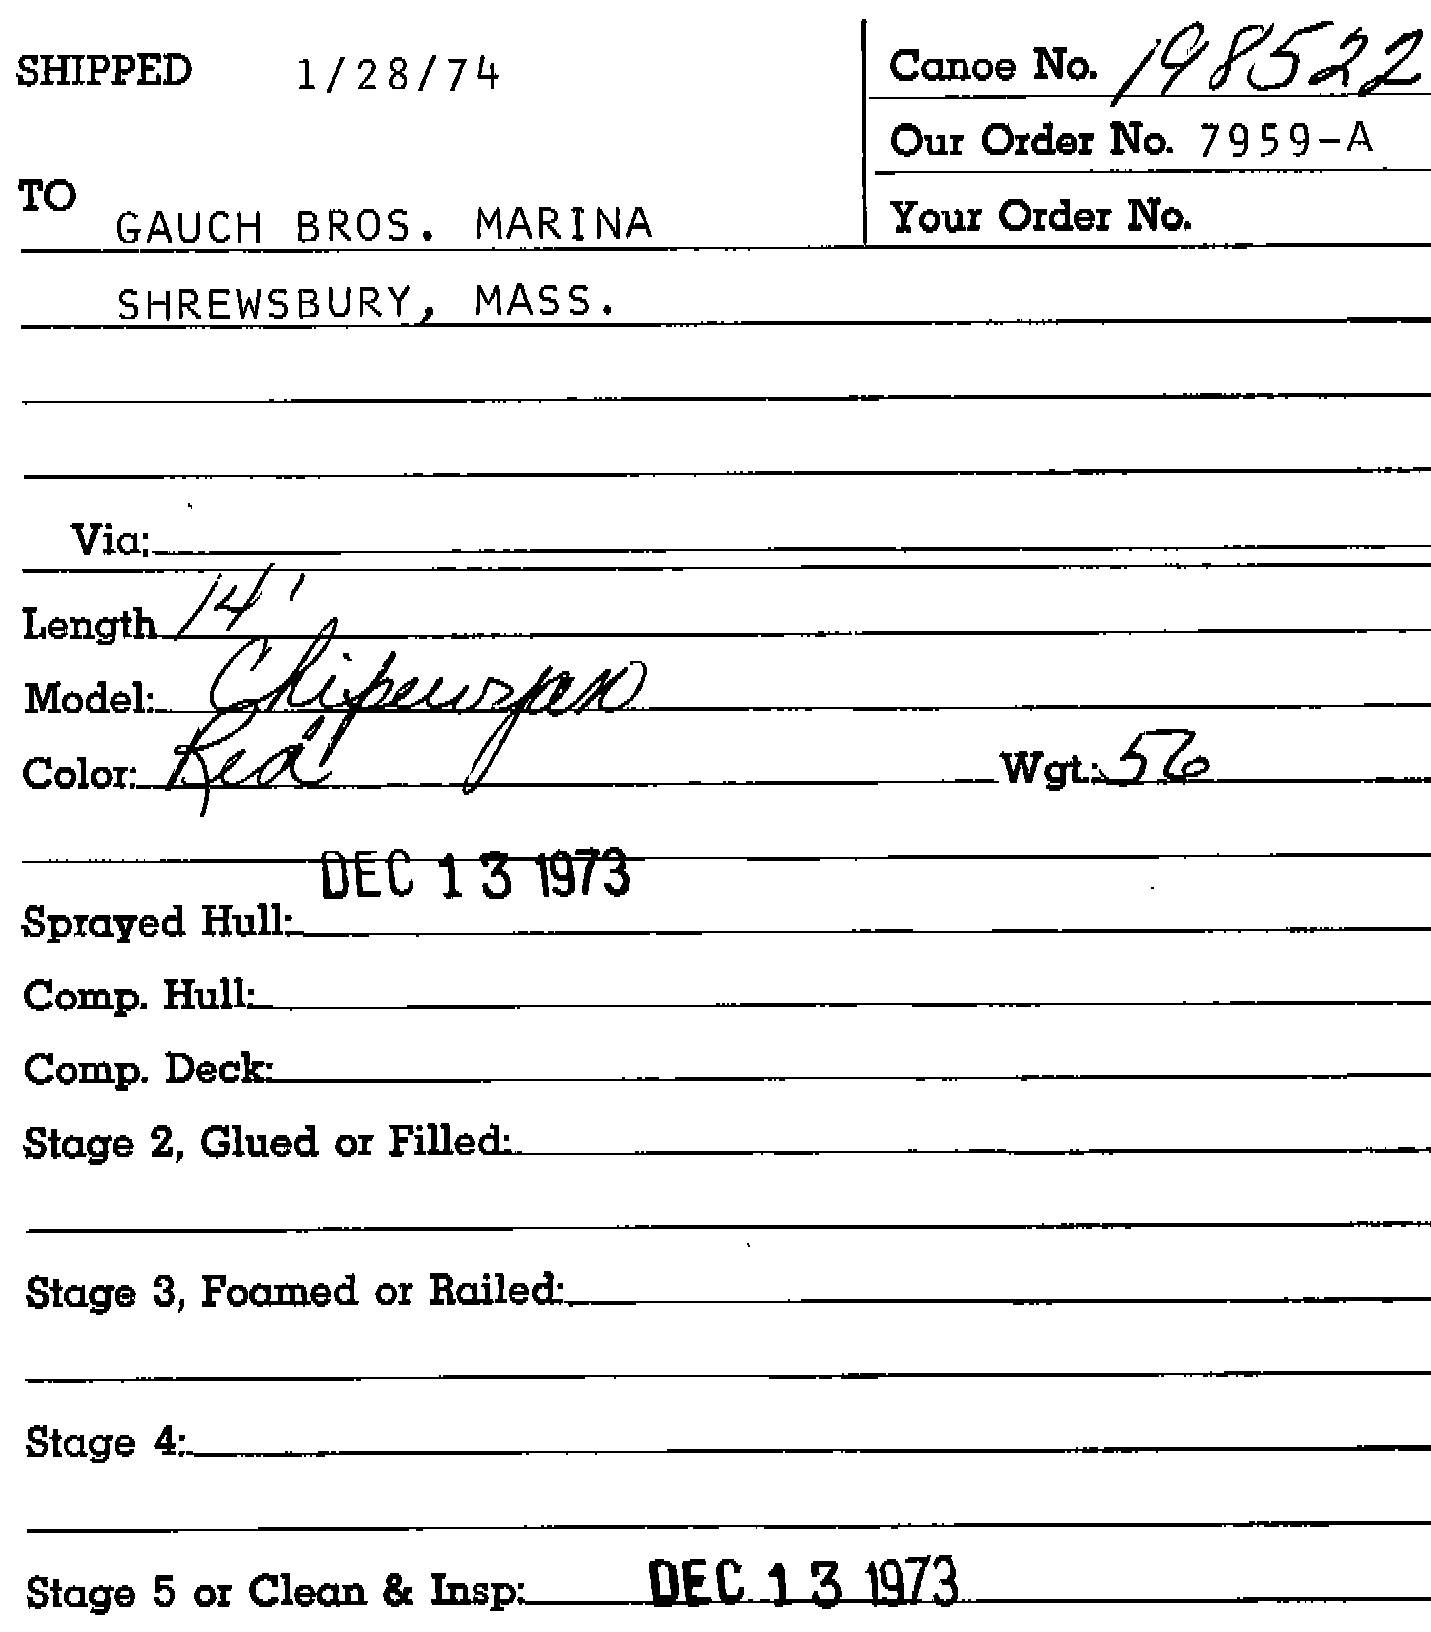 SHIPPED 1/28/74
Canoe No. 198522
Our Order No. 7959-A
TO GAUCH BROS. MARINA
Your Order No.
SHREWSBURY, MASS.
Via:
Length 14'
Model: Chipewyan
Color: Red Wgt.: 56
DEC 13 1973
Sprayed Hull:
Comp. Hull:
Comp. Deck:
Stage 2, Glued or Filled:
Stage 3, Foamed or Railed:
Stage 4:
Stage 5 or Clean & Insp: DEC 13 1973